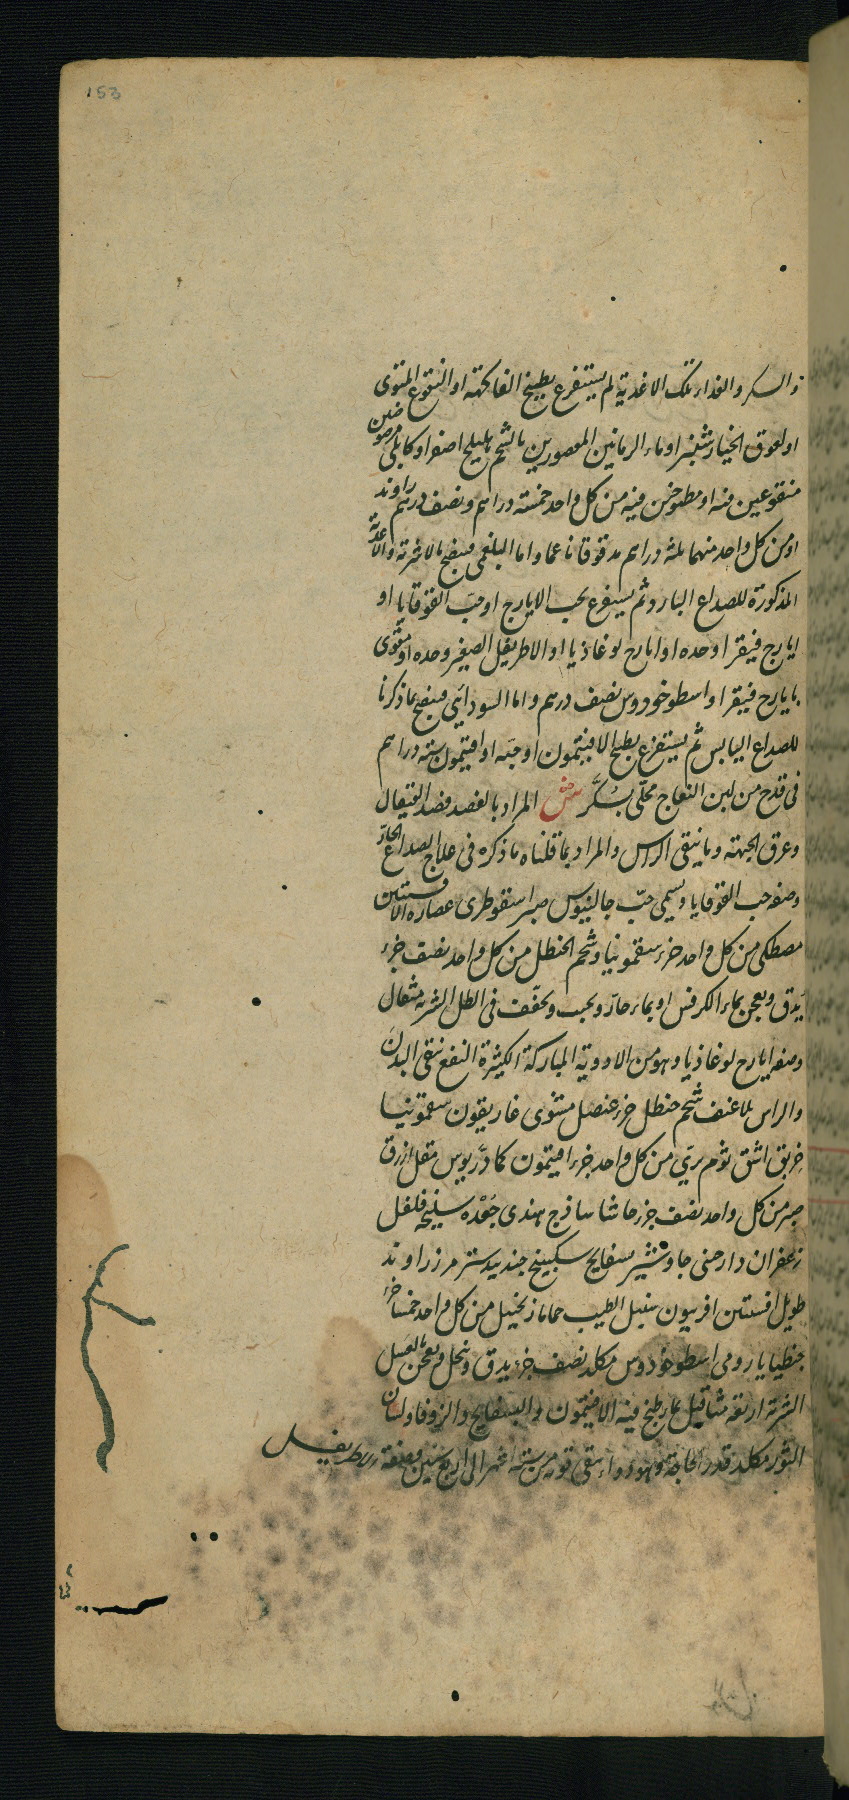 153
والسكر والغذاء تلك الاغذية ثم يستفرغ بطبيخ الفاكهة او النقوع المقوى
او لعوق الخيارشنبر او ماء الرمانين المعصورين بالشحم بهليلج اصفر او كابلى مرضوضين
منقوعين فيه او مطبوخين فيه من كل واحد خمسة دراهم ونصف درهم راوند
او من كل واحد منهما ثلثة دراهم مدقوقا ناعما واما البلغمى فينضج بالاشربة والاغذية
المذكورة للصداع البارد ثم يستفرغ بحب الايارج او حب القوقايا او
ايارج فيقرا وحده او ايارج لوغاذيا او الاطريفل الصغير وحده او مقوى
بايارج فيقرا واسطوخودوس نصف درهم واما السوداوى فينضج بما ذكرنا
للصداع اليابس ثم يستفرغ بطبيخ الافيتمون او حبه او افيتمون ستة دراهم
فى قدح من لبن النعاج محلى بسكر ش المراد بالفصد فصد القيفال
وعرق الجبهة وما ينقى الراس والمراد بما قلناه ما ذكره فى علاج الصداع الحار
وصفه حب القوقايا ويسمى حب جالينوس صبر اسقوطرى عصارة الافسنتين
مصطكى من كل واحد جزء سقمونيا وشحم الحنظل من كل واحد نصف جزء
يدق ويعجن بماء الكرفس او بماء حار ويحبب ويجفف فى الظل الشربة مثقال
وصفه ايارج لوغاذيا وهو من الادوية المباركة الكثيرة النفع ينقى البدن
والراس بلا عنف شحم حنظل جزء عنصل مشوى غاريقون سقمونيا
خربق اشق ثوم برى من كل واحد جزء افيتمون كمادريوس مقل ازرق
صبر من كل واحد نصف جزء حاشا ساذج هندى جعده سليخه فلفل
زعفران دارصينى جاوشير بسفايج سكبينج جندبيدستر مر زراوند
طويل افسنتين افربيون سنبل الطيب حماما زنجبيل من كل واحد خمسا جزء
جنطيانا رومى اسطوخودوس مكلد نصف جزء يدق وينخل ويعجن بالعسل
الشربة اربعة مثاقيل بماء طبخ فيه الافيتمون والبسفايج والزوفا ولسان
الثور مكلد قدر الحاجة وهو دواء يبقى قوته من ستة اشهر الى اربع سنين وصفة اطريفل